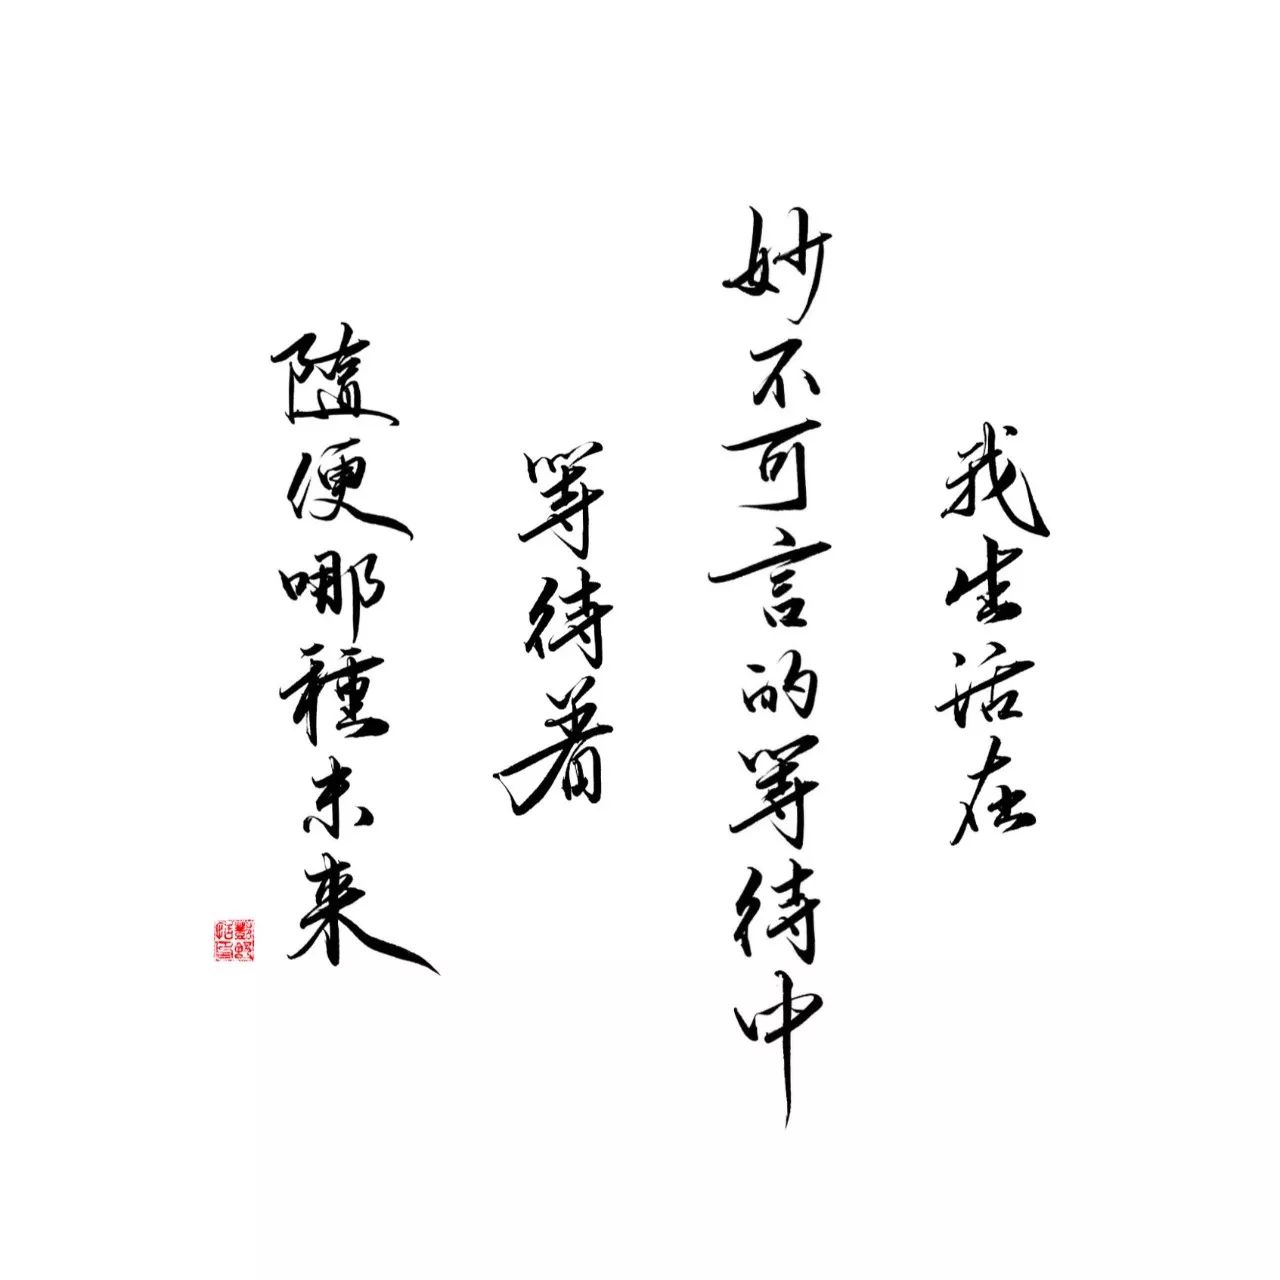 我生活在
妙不可言的等待中
等待著
隨便哪種未來